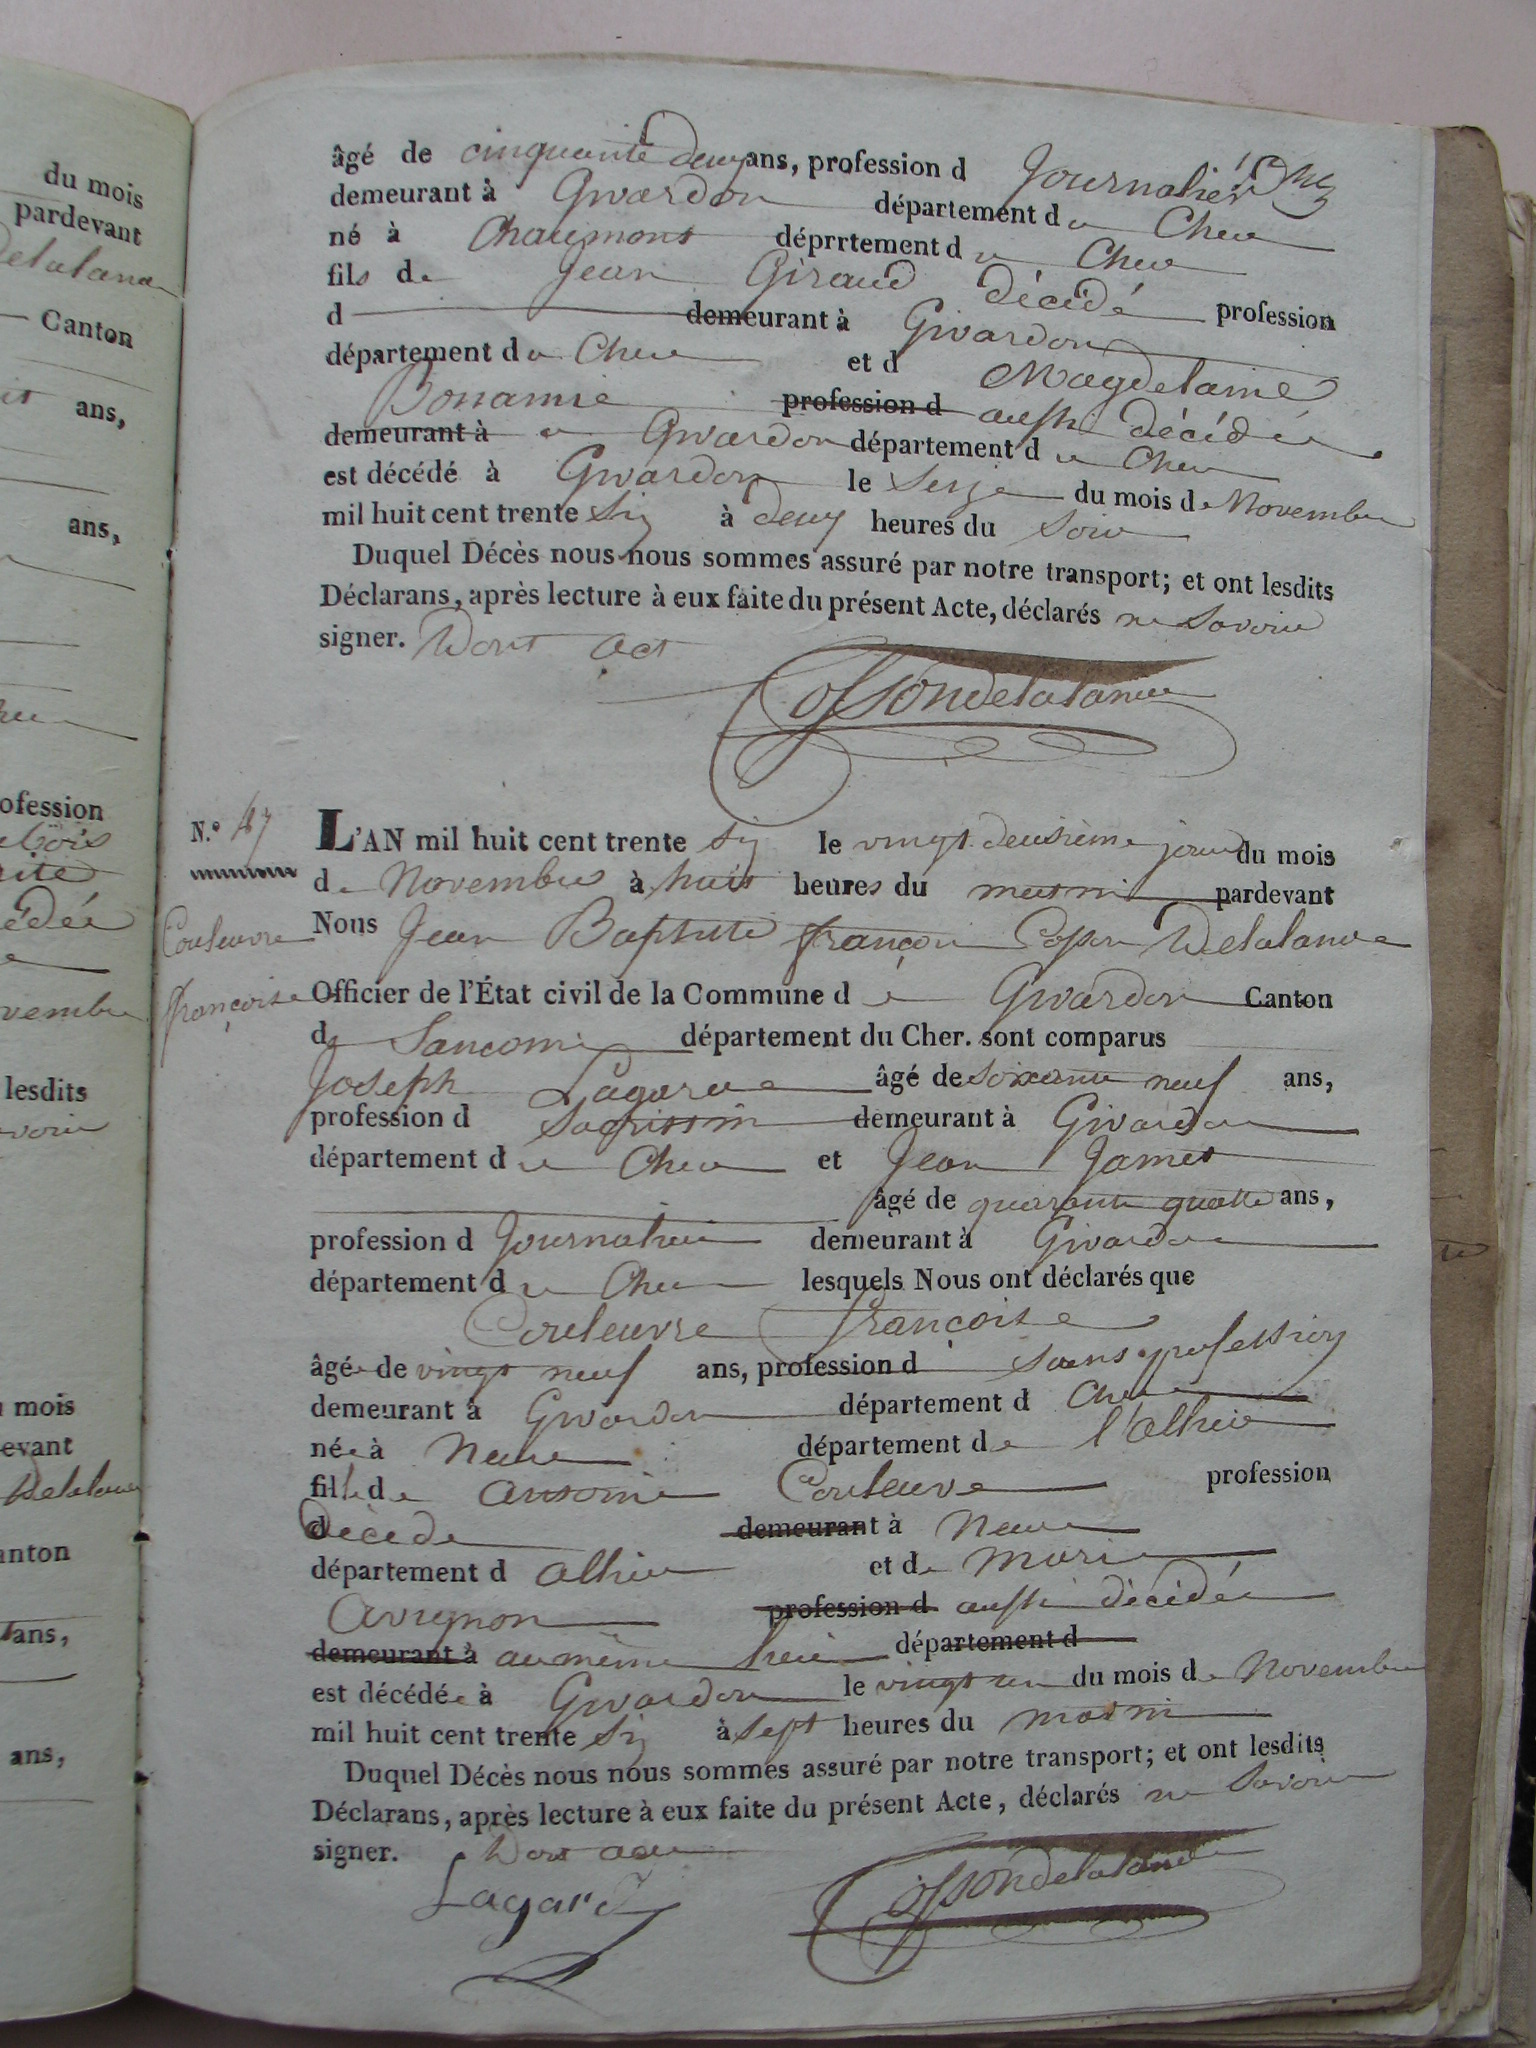 du mois
pardevant
Delaland
Canton
ans,
ans,
ofession
lesdits
mois
evant
anton
ans,
ans,
âgé de cinquante deux ans, profession d Journalier
demeurant à Givardon département du Cher
né à Chaumont déprrtement du Cher
fils de Jean Giraud décédé profession
d demeurant à Givardon
département du Cher et d Magdelaine
Bonamie profession d aussi décédée
demeurant à a Givardon département du Cher
est décédé à Givardon le Seize du mois de Novembre
mil huit cent trente Six à deux heures du Soir
Duquel Décès nous nous sommes assuré par notre transport; et ont lesdits
Déclarans, après lecture à eux faite du présent Acte, déclarés ne Savoir
signer. Dont act
Cossondelalande
N.º 47
L'AN mil huit cent trente Six le vingt deuxième jour du mois
de Novembre à huit heures du matin pardevant
Couleuvre
Nous Jean Baptiste françois Cosson Delalande
françoise
Officier de l'État civil de la Commune de Givardon Canton
de Sancoins département du Cher. sont comparus
Joseph Lagarde âgé de soixante neuf ans,
profession d Sacristin demeurant à Givardon
département du Cher et Jean Jamet
âgé de quarante quatre ans,
profession d Journalier demeurant à Givardon
département du Cher lesquels Nous ont déclarés que
Couleuvre françoise
âgée de vingt neuf ans, profession d sans profession
demeurant à Givardon département d Cher
née à Neuve département de l'allier
fille de antoine Couleuvre profession
décédé demeurant à Neuve
département d allier et de Marie
avignon profession d aussi décédée
demeurant à au même lieu département d
est décédée à Givardon le vingt un du mois de Novembre
mil huit cent trente Six à Sept heures du matin
Duquel Décès nous nous sommes assuré par notre transport; et ont lesdits
Déclarans, après lecture à eux faite du présent Acte, déclarés ne Savoir
signer. Dont acte
Lagarde Cossondelalande